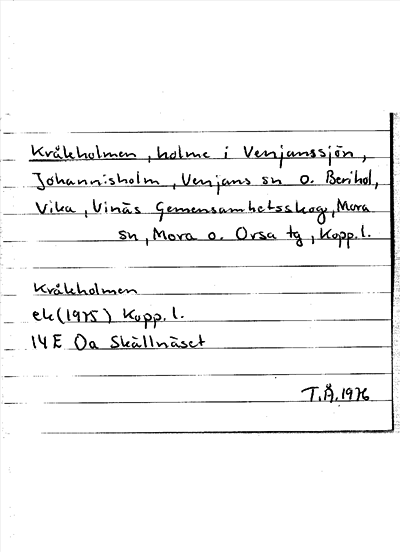 Kråkholmen, holme i Venjanssjön,
Johannisholm, Venjans sn o. Berihol,
Vika, Vinäs Gemensamhetsskog, Mora
sn, Mora o. Orsa tg, Kopp.l.
Kråkholmen
ek (1975) Kopp.l.
14E 0a Skällnäset
T.Å. 1976